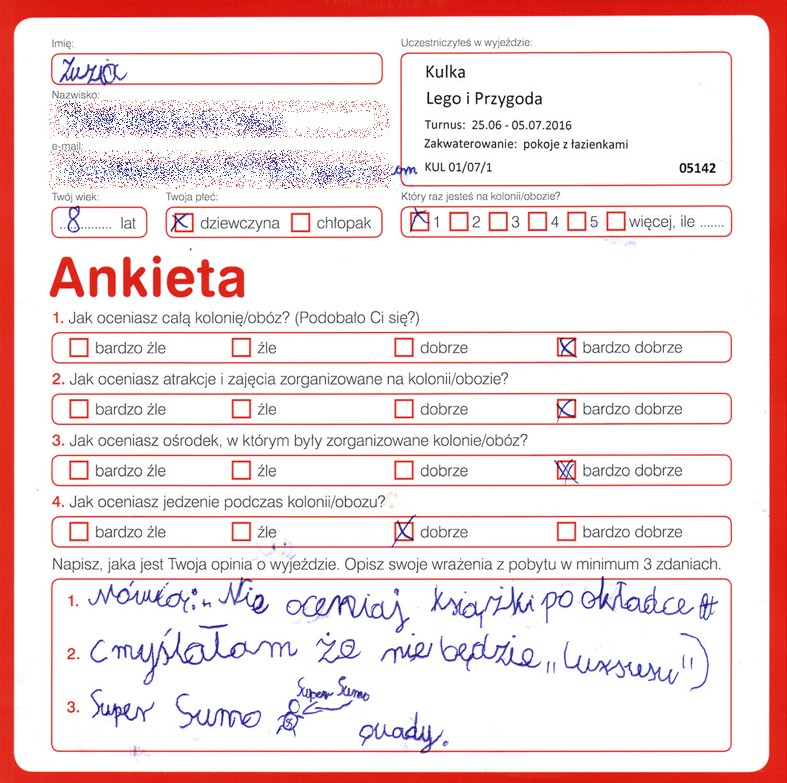 Imię:
Zuzia
Nazwisko:
e-mail:
om
Twój wiek:
8 lat
Twoja płeć:
dziewczyna chłopak
Uczestniczyłeś w wyjeździe:
Kulka
Lego i Przygoda
Turnus: 25.06 - 05.07.2016
Zakwaterowanie: pokoje z łazienkami
KUL 01/07/1 05142
Który raz jesteś na kolonii/obozie?
1 2 3 4 5 więcej, ile .......
Ankieta
1. Jak oceniasz całą kolonię/obóz? (Podobało Ci się?)
bardzo źle źle dobrze bardzo dobrze
2. Jak oceniasz atrakcje i zajęcia zorganizowane na kolonii/obozie?
bardzo źle źle dobrze bardzo dobrze
3. Jak oceniasz ośrodek, w którym były zorganizowane kolonie/obóz?
bardzo źle źle dobrze bardzo dobrze
4. Jak oceniasz jedzenie podczas kolonii/obozu?
bardzo źle źle dobrze bardzo dobrze
Napisz, jaka jest Twoja opinia o wyjeździe. Opisz swoje wrażenia z pobytu w minimum 3 zdaniach.
1. Mówią: „Nie oceniaj książki po okładce"
2. (myślałam że nie będzie „luxsusu")
Super Sumo
3. Super Sumo quady.